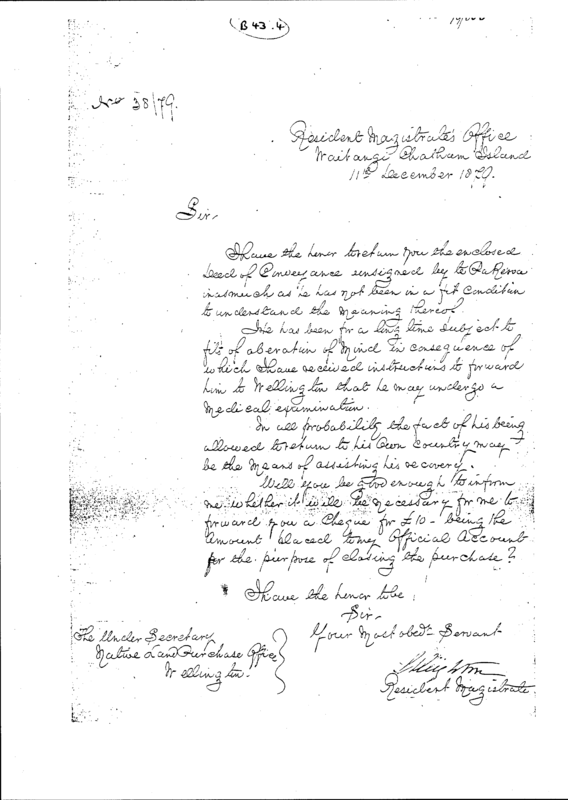 B 43.4
No 38/79.
Resident Magistrate's Office
Waitangi Chatham Island
11th December 1879.
Sir,
I have the honor to return you the enclosed
Deed of Conveyance unsigned by
inasmuch as he has not been in a fit condition
to understand the meaning thereof.
He has been for a long time subject to
fits of aberation of Mind in consequence of
which I have received instructions to forward
him to Wellington that he may undergo a
Medical examination.
In all probability the fact of his being
allowed to return to his Own Country may
be the Means of assisting his recovery.
Will you be good enough to inform
me whether it will be necessary for me to
forward you a Cheque for £10 - being the
amount placed to my Official Account
for the purpose of closing the purchase?
I have the honor to be
Sir,
Your Most obedt Servant
The Under Secretary
Native Land Purchase Office
Wellington.
Resident Magistrate